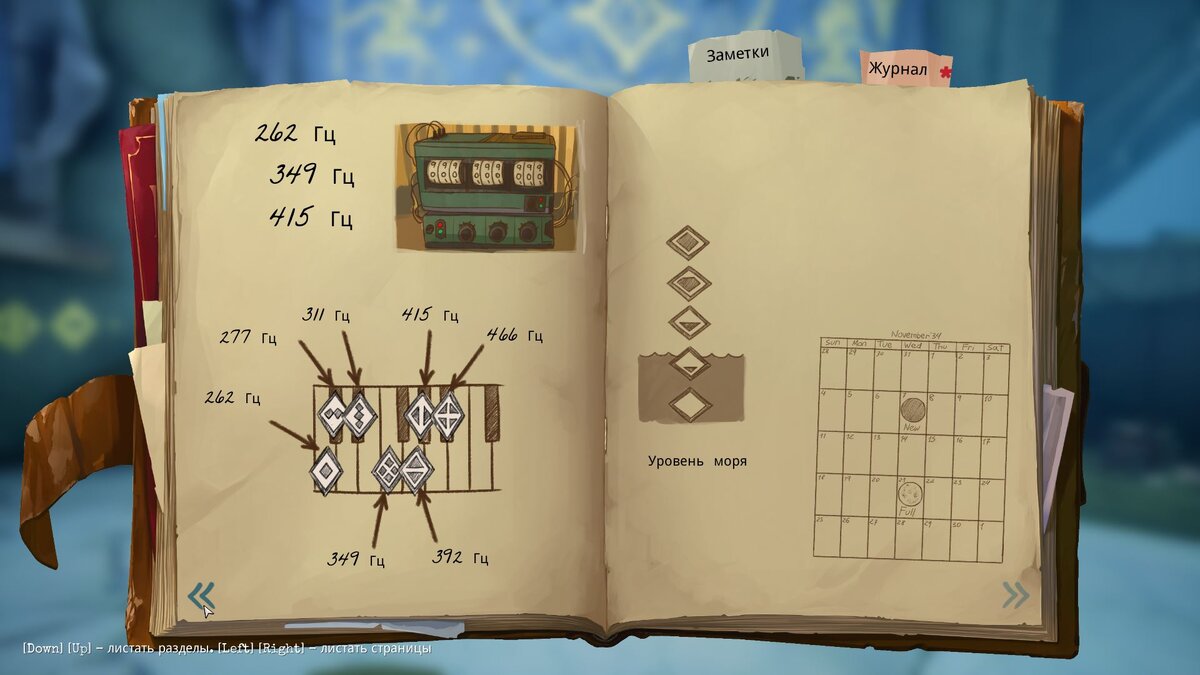 Заметки
Журнал *
262 Гц
349 Гц
415 Гц
311 Гц
415 Гц
277 Гц
466 Гц
262 Гц
349 Гц
392 Гц
Уровень моря
November 34
Sun Mon Tue Wed Thu Fri Sat
28 29 30 31 1 2 3
4 5 6 7 8 9 10
New
11 12 13 14 15 16 17
18 19 20 21 22 23 24
Full
25 26 27 28 29 30 1
[Down] [Up] – листать разделы. [Left] [Right] – листать страницы